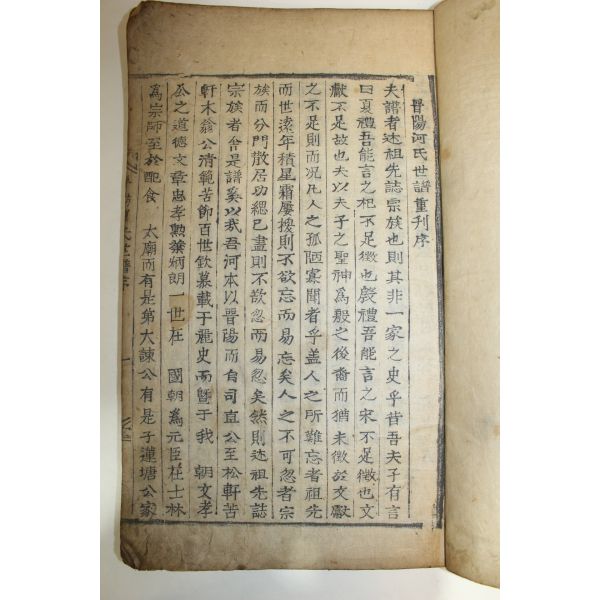 晉陽河氏世譜重刋序
夫譜者述祖先誌宗族也則其非一家之史乎昔吾夫子有言
曰夏禮吾能言之杞不足徵也殷禮吾能言之宋不足徵也文
獻不足故也夫以夫子之聖神爲殷之後裔而猶未徵於文獻
之不足則而况凡人之孤陋寡聞者乎盖人之所難忘者祖先
而世遠年積星霜屢換則不欲忘而易忘矣人之不可忽者宗
族而分門散居功緦已盡則不欲忽而易忽矣然則述祖先誌
宗族者舍是譜奚以我吾河本以晉陽而自司直公至松軒苦
軒木翁公清範苦節百世欽慕載于龍史而曁于我 朝文孝
公之道德文章忠孝勲業炳朗一世在 國朝爲元臣在士林
爲宗師至於配食 太廟而有是第大諫公有是子蓮塘公家